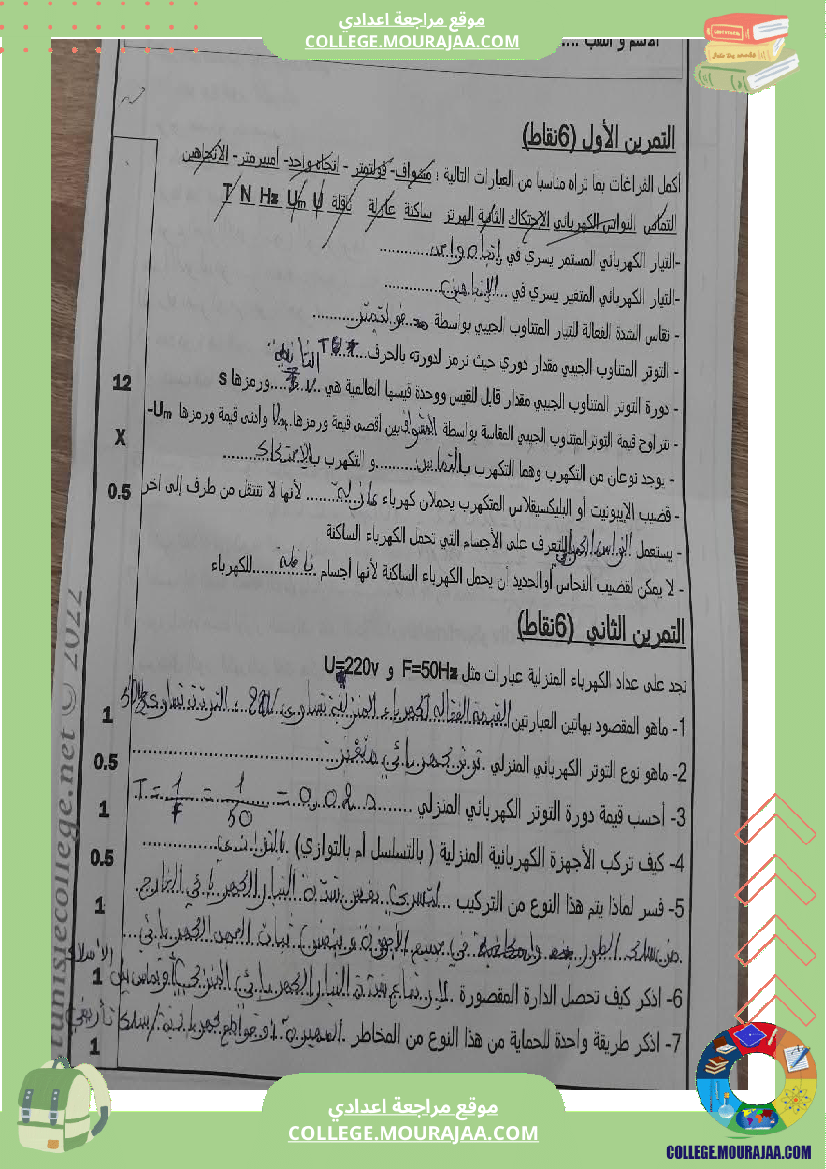 موقع مراجعة اعدادي
COLLEGE.MOURAJAA.COM
الاسم و اللقب ....
التمرين الأول (6نقاط)
أكمل الفراغات بما تراه مناسبا من العبارات التالية : مشواف- فولتمتر - اتجاه واحد- أمبيرمتر- الاتجاهين
التماس النواس الكهربائي الاحتكاك الثانية الهرتز ساكنة عازلة ناقلة T N Hz Um U
-التيار الكهربائي المستمر يسري في إتجاه واحد............
-التيار الكهربائي المتغير يسري في ...الإتجاهين............
- نقاس الشدة الفعالة للتيار المتناوب الجيبي بواسطة ...فولتمتر............
- التوتر المتناوب الجيبي مقدار دوري حيث نرمز لدورته بالحرف....T
- دورة التوتر المتناوب الجيبي مقدار قابل للقيس ووحدة قيسها العالمية هي ........ورمزها s
الثانية
- تتراوح قيمة التوتر المتناوب الجيبي المقاسة بواسطة المشواف بين أقصى قيمة ورمزها..Um وأدنى قيمة ورمزها Um-
- يوجد نوعان من التكهرب وهما التكهرب بالتماس............و التكهرب بالإحتكاك............
- قضيب الإيبونيت أو البليكسيقلاس المتكهرب يحملان كهرباء عازلة........ لأنها لا تنتقل من طرف إلى اخر
- يستعمل النواس الكهربائي للتعرف على الأجسام التي تحمل الكهرباء الساكنة
- لا يمكن لقضيب النحاس أوالحديد أن يحمل الكهرباء الساكنة لأنها أجسام ناقلة............للكهرباء
12
X
0.5
التمرين الثاني (6نقاط)
نجد على عداد الكهرباء المنزلية عبارات مثل F=50Hz و U=220v
1- ماهو المقصود بهاتين العبارتين القيمة الفعالة لكهرباء المنزلية تساوي 220V ، التردد تساوي 50Hz
1
2- ماهو نوع التوتر الكهربائي المنزلي .توتر كهربائي متغير............
0.5
3- أحسب قيمة دورة التوتر الكهربائي المنزلي ........ T = 1/F = 1/50 = 0.02 s
1
4- كيف تركب الأجهزة الكهربائية المنزلية ( بالتسلسل أم بالتوازي) .بالتوازي............
0.5
5- فسر لماذا يتم هذا النوع من التركيب ...لتسري نفس شدة التيار الكهربائي الخارج.
1
من سلك الطور في جميع الأجهزة الكهربائي
6- اذكر كيف تحصل الدارة المقصورة .لإرتفاع شدة التيار الكهربائي المنزلي أو تماس بين الأسلاك
1
7- اذكر طريقة واحدة للحماية من هذا النوع من المخاطر .الصهيرة أو قواطع كهربائية/سلك تأريض
1
tunisiecollege.net © 2022
موقع مراجعة اعدادي
COLLEGE.MOURAJAA.COM
COLLEGE.MOURAJAA.COM